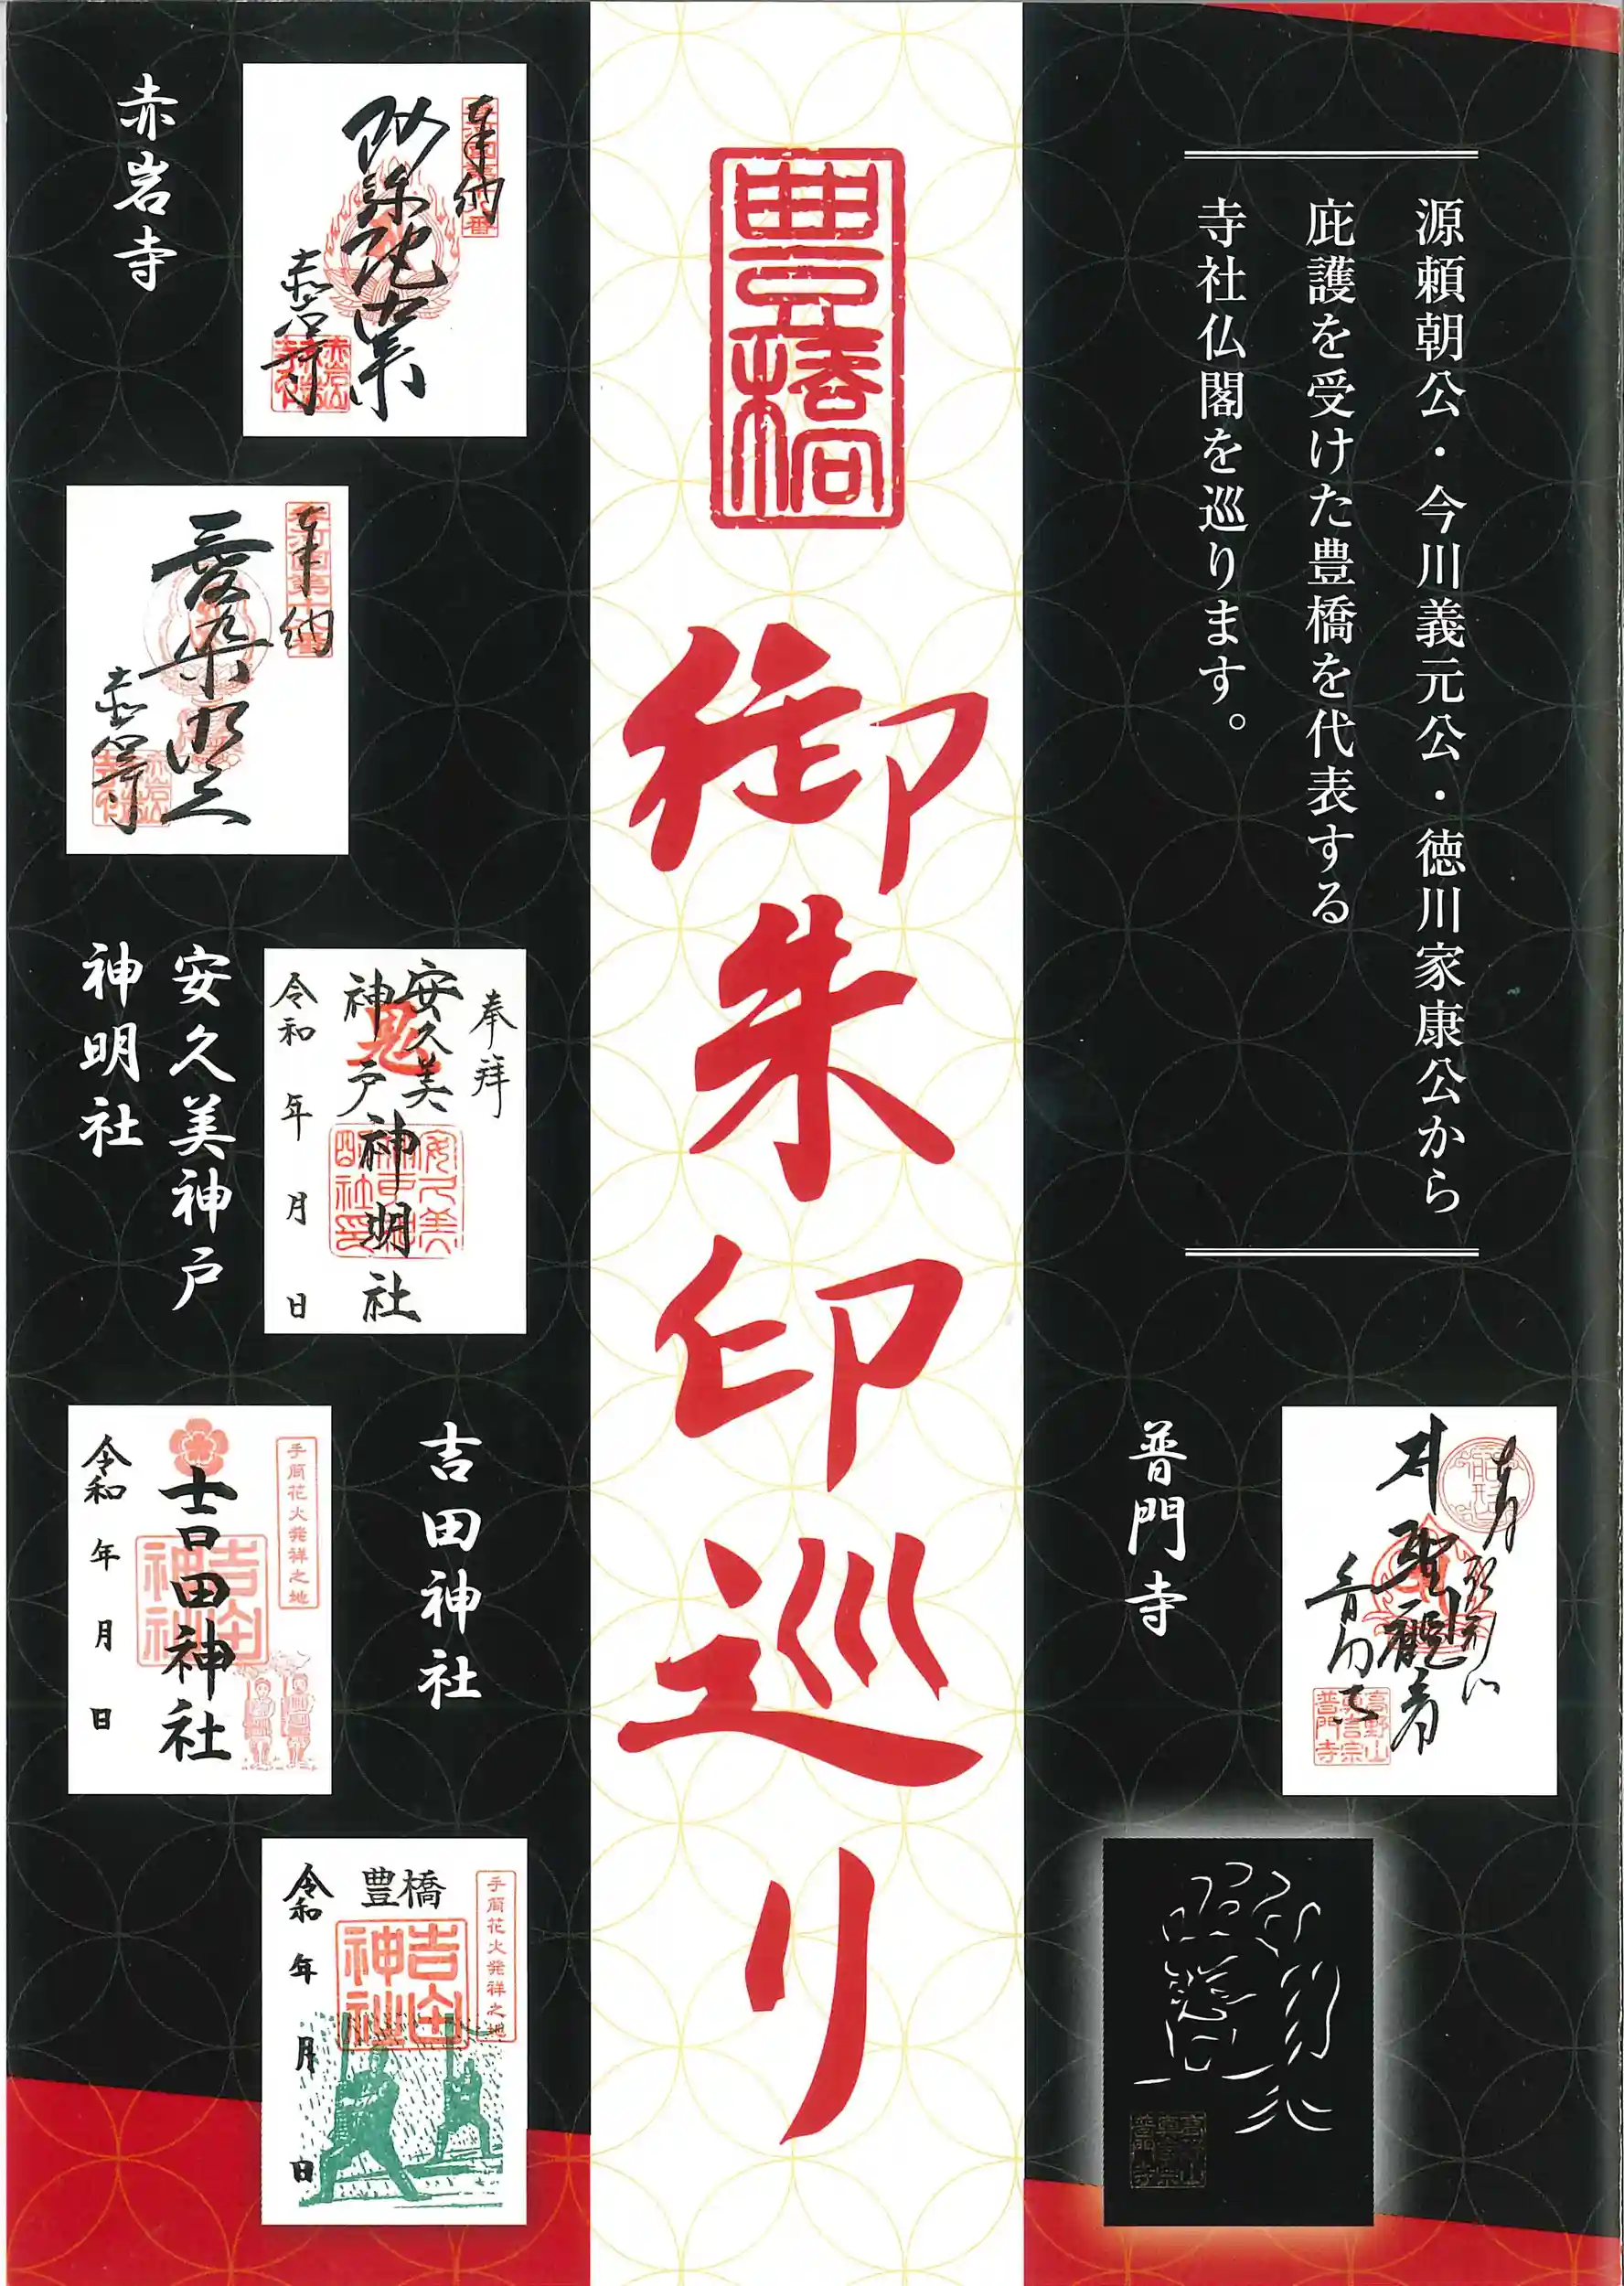 源頼朝公・今川義元公・徳川家康公から
庇護を受けた豊橋を代表する
寺社仏閣を巡ります。
普門寺
高野山
真言宗
普門寺
豊橋
御朱印巡り
赤岩寺
奉納
愛染明王
赤岩寺
奉納
安久美神戸
神明社
奉拝
鬼
安久美
神戸
神明社
令和 年 月 日
吉田神社
手筒花火発祥之地
吉田神社
吉田
神社
令和 年 月 日
手筒花火発祥之地
豊橋
吉田
神社
令和 年 月 日